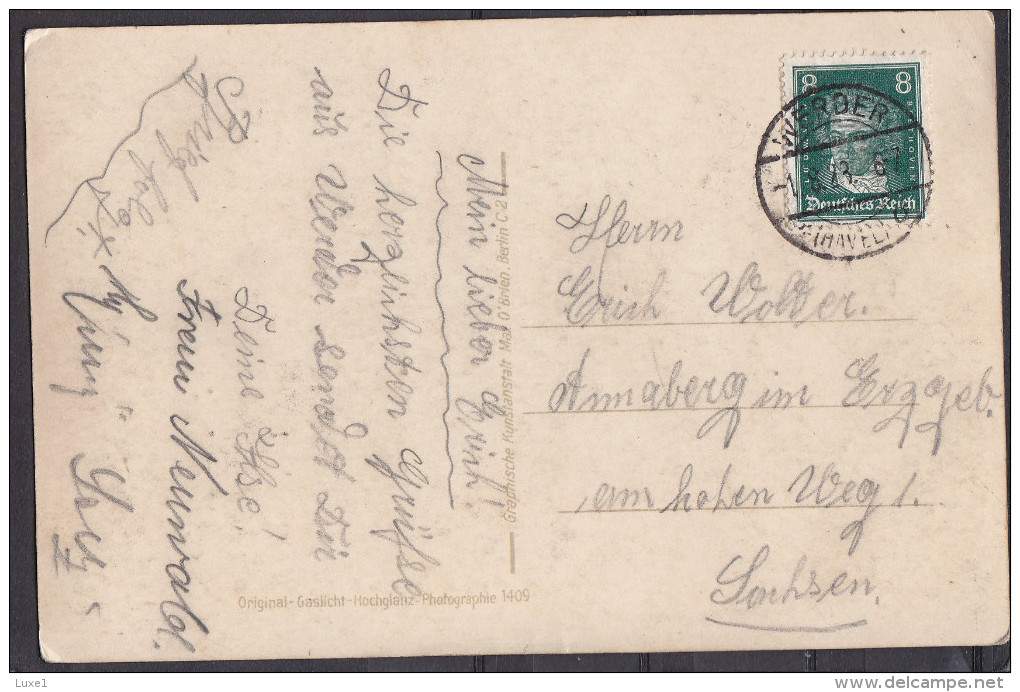 Mein lieber Erich!
Die herzlichsten Grüsse
aus Werder sendet Dir
Deine Ilse!
Frau Neuwald.
Graphische Kunstanstalt Max O'Brien, Berlin C 2
Original-Gaslicht-Hochglanz-Photographie 1409
8 8
Deutsches Reich
WERDER
(HAVEL)
Herrn
Erich Wolter.
Annaberg im Erzgeb.
am hohen Weg 1.
Sachsen.
Luxe1
delcampe.net